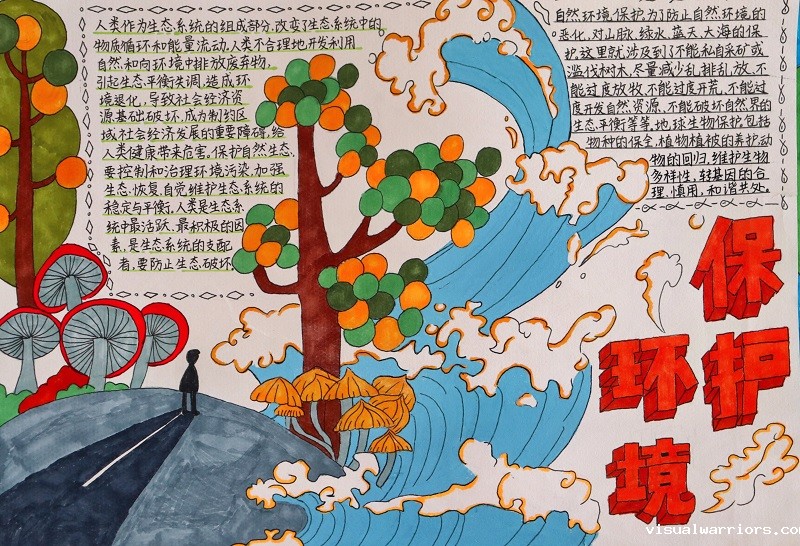 人类作为生态系统的组成部分,改变了生态系统中的
物质循环和能量流动,人类不合理地开发利用
自然,和向环境中排放废弃物,
引起生态平衡失调,造成环
境退化,导致社会经济资
源基础破坏,成为制约区
域社会经济发展的重要障碍,给
人类健康带来危害。保护自然生态,
要控制和治理环境污染,加强
生态恢复,自觉维护生态系统的
稳定与平衡,人类是生态系
统中最活跃、最积极的因
素,是生态系统的支配
者,要防止生态破坏
自然环境保护,为了防止自然环境的
恶化,对山脉、绿水、蓝天、大海的保
护,这里就涉及到了不能私自采矿或
滥伐树木,尽量减少乱排乱放、不
能过度放牧、不能过度开荒、不能过
度开发自然资源、不能破坏自然界的
生态平衡等等,地球生物保护包括
物种的保全,植物植被的养护,动
物的回归,维护生物
多样性,转基因的合
理、慎用,和谐共处。
保护
环境
visualwarriors.com